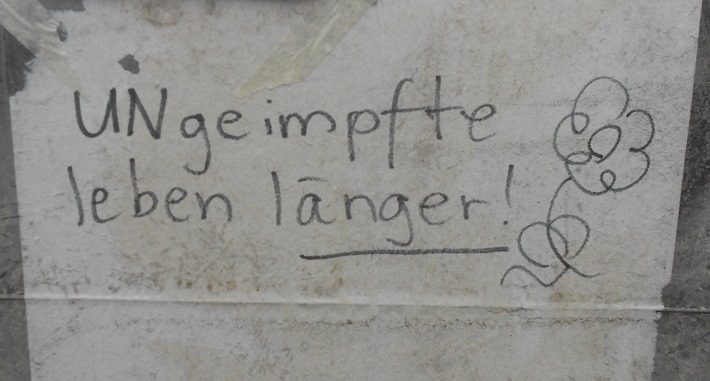 UNgeimpfte
leben länger!